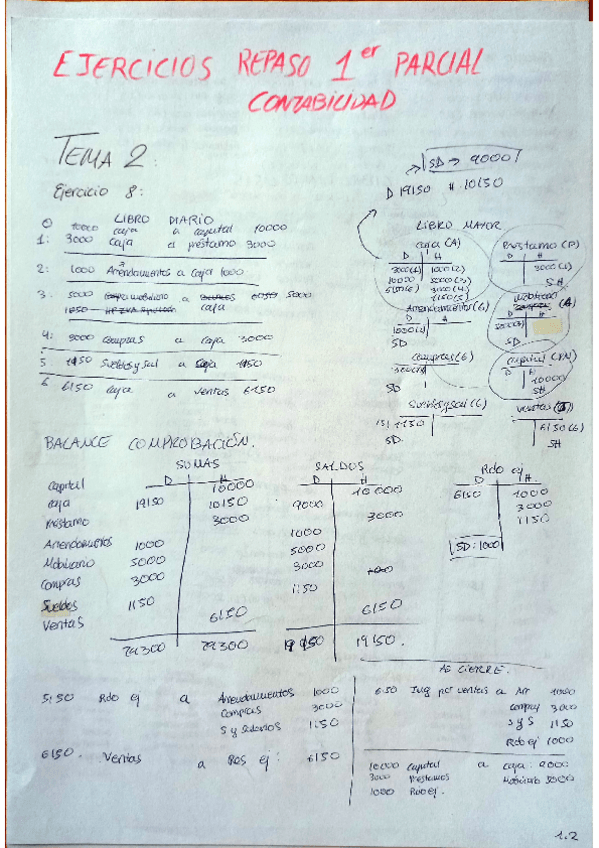 EJERCICIOS REPASO 1er PARCIAL
CONTABILIDAD
TEMA 2:
Ejercicio 8:
SD → 9000
D 19150 H 10150
LIBRO DIARIO
0 10000 caja a capital 10000
1: 3000 Caja a préstamo 3000
2: 1000 Arrendamientos a Caja 1000
3. 5000 mobiliario a 5000
caja
4: 3000 Compras a caja 3000
5 1150 Sueldos y sal a caja 1150
6 6150 caja a ventas 6150
LIBRO MAYOR
caja (A)
D H
3000(1) 1000(2)
10000 5000(3)
6150(6) 3000(4)
1150(5)
Préstamo (P)
D H
3000(1)
SH
Arrendamientos(G)
D H
1000(2)
SD
(A)
D H
5000(3)
SD
compras(G)
3000(4)
SD
capital (PN)
D H
10000
SH
Sueldosysal(G)
(5) 1150
SD
ventas
6150(6)
SH
BALANCE COMPROBACIÓN.
SUMAS SALDOS
D H D H
capital 10000 10000
caja 19150 10150 9000
Préstamo 3000 3000
Arrendamientos 1000 1000
Mobiliario 5000 5000
Compras 3000 3000
Sueldos 1150 1150
Ventas 6150 6150
29300 29300 19150 19150.
Rdo ej
D H
6150 1000
3000
1150
SD: 1000
AS CIERRE.
5150 Rdo ej a Arrendamientos 1000
Compras 3000
S y Salarios 1150
6150. Ventas a Res ej: 6150
6150 Ing por ventas a Arr 1000
compras 3000
S y S 1150
Rdo ej 1000
10000 Capital a caja: 9000
3000 Préstamos Mobiliario 5000
1000 Rdo ej.
1.2